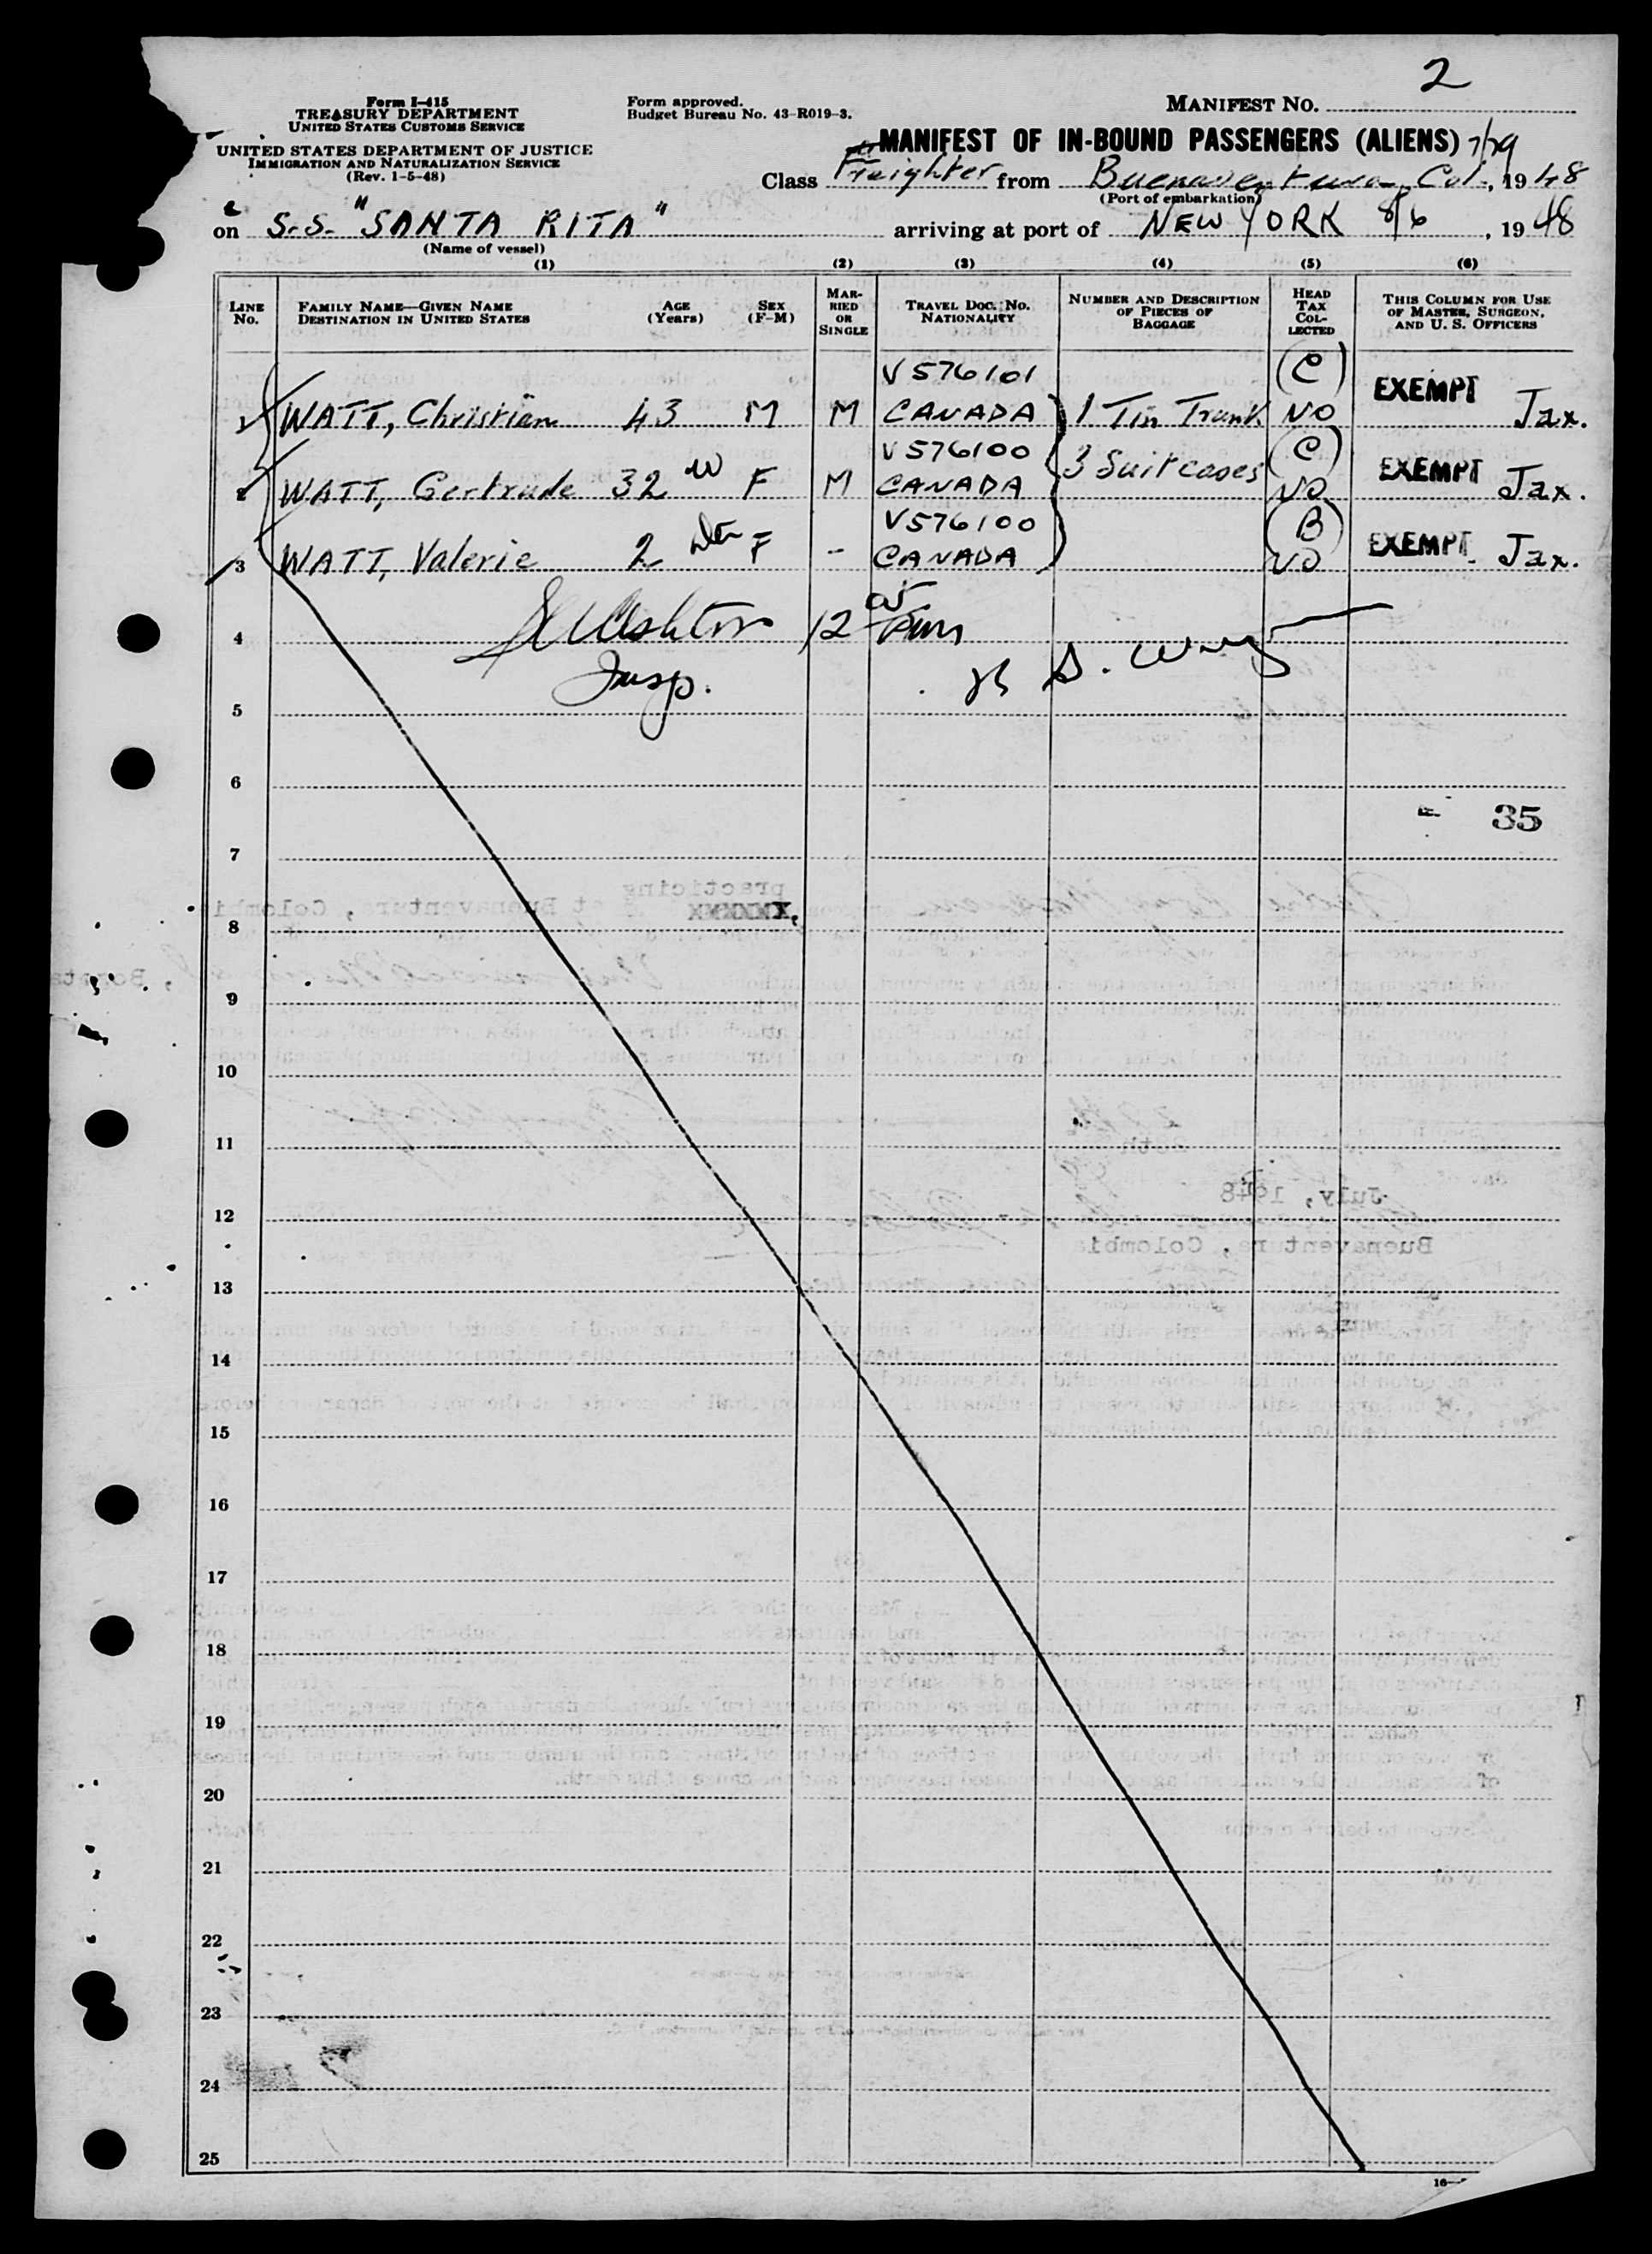 2
Form I-415
TREASURY DEPARTMENT
UNITED STATES CUSTOMS SERVICE
UNITED STATES DEPARTMENT OF JUSTICE
IMMIGRATION AND NATURALIZATION SERVICE
(Rev. 1-5-48)
Form approved.
Budget Bureau No. 43-R019-3.
MANIFEST NO.
MANIFEST OF IN-BOUND PASSENGERS (ALIENS) 7/29
Class Freighter from Buenaventura Col., 1948
(Port of embarkation)
on S.S. "SANTA RITA" arriving at port of NEW YORK 8/6, 1948
(Name of vessel)
(1) (2) (3) (4) (5) (6)
LINE No.
FAMILY NAME—GIVEN NAME
DESTINATION IN UNITED STATES
AGE (Years)
SEX (F-M)
MARRIED OR SINGLE
TRAVEL DOC. No.
NATIONALITY
NUMBER AND DESCRIPTION OF PIECES OF BAGGAGE
HEAD TAX COLLECTED
THIS COLUMN FOR USE OF MASTER, SURGEON, AND U. S. OFFICERS
V576101 (C)
WATT, Christian 43 M M CANADA 1 Tin Trunk NO EXEMPT Jax.
V576100 (C)
2 WATT, Gertrude 32 W F M CANADA 3 Suitcases NO EXEMPT Jax.
V576100 (B)
3 WATT, Valerie 2 F - CANADA NO EXEMPT Jax.
4
Insp.
5
6
35
7
practicing
Buenaventura, Colombia
8
9
10
11
July, 1948
12
Buenaventura, Colombia
13
14
15
16
17
18
19
20
21
22
23
24
25